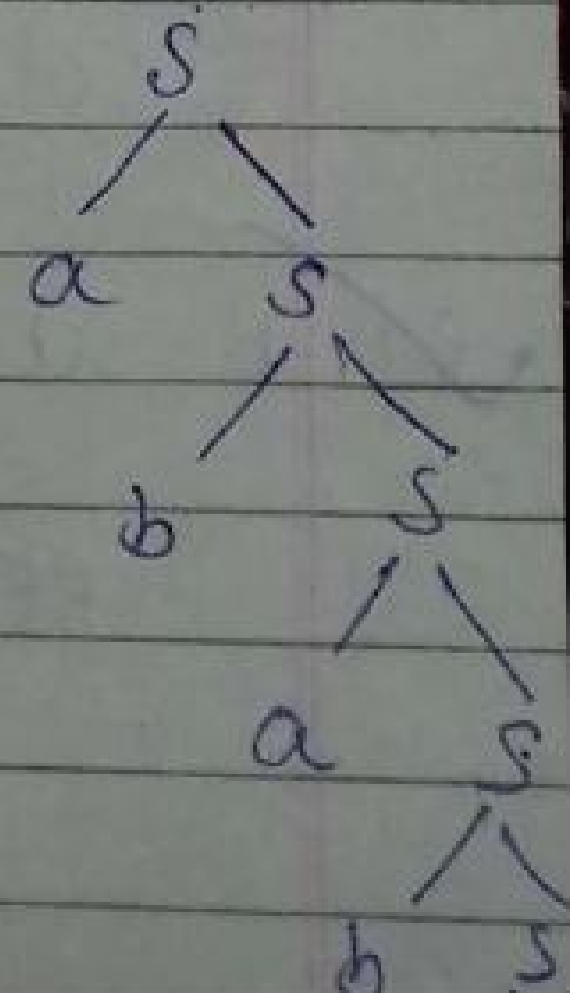 S
a S
b S
a S
b S